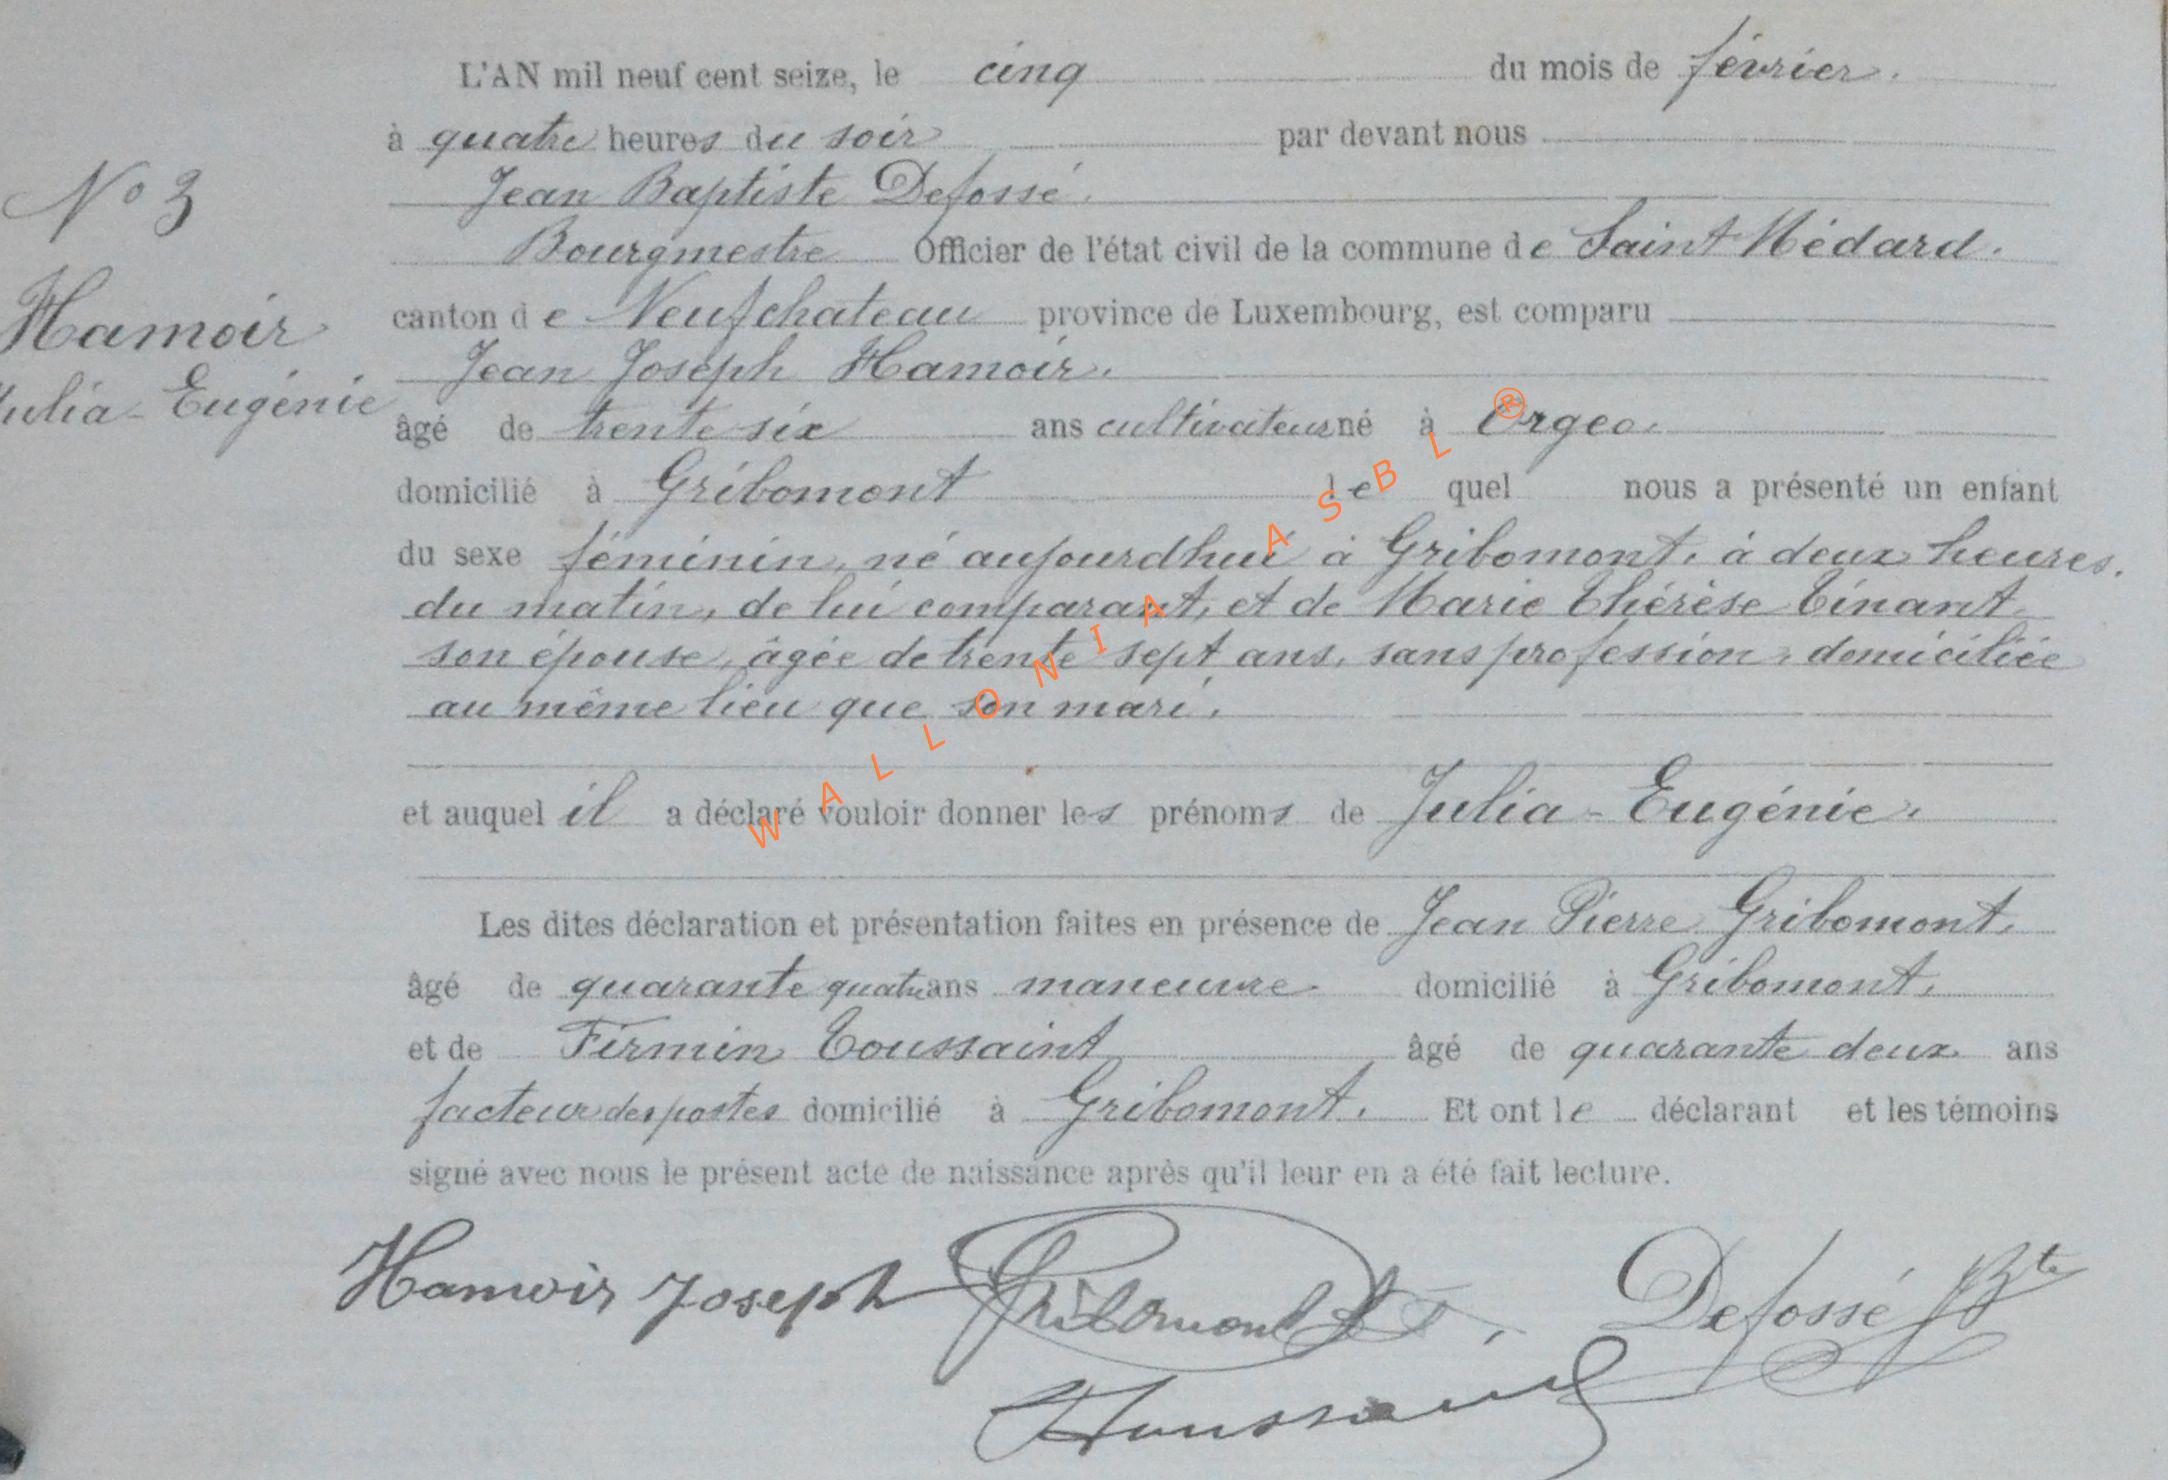 L'AN mil neuf cent seize, le cinq du mois de février.
à quatre heures du soir par devant nous
Jean Baptiste Defossé.
Bourgmestre Officier de l'état civil de la commune de Saint Médard.
canton de Neufchateau province de Luxembourg, est comparu
Jean Joseph Hamoir.
âgé de trente six ans cultivateur né à Orgeo.
domicilié à Gribomont le quel nous a présenté un enfant
du sexe féminin, né aujourdhui à Gribomont, à deux heures.
du matin, de lui comparant, et de Marie Thérèse Tinant
son épouse, âgée de trente sept ans, sans profession, domiciliée
au même lieu que son mari.
et auquel il a déclaré vouloir donner les prénoms de Julia-Eugénie.
Les dites déclaration et présentation faites en présence de Jean Pierre Gribomont,
âgé de quarante quatre ans maneuvre domicilié à Gribomont,
et de Firmin Toussaint âgé de quarante deux ans
facteur des postes domicilié à Gribomont. Et ont le déclarant et les témoins
signé avec nous le présent acte de naissance après qu'il leur en a été fait lecture.
Hamoir Joseph Gribomont Defossé JBte
Toussaint
No 3
Hamoir
Julia-Eugénie
WALLONIA ASBL ®